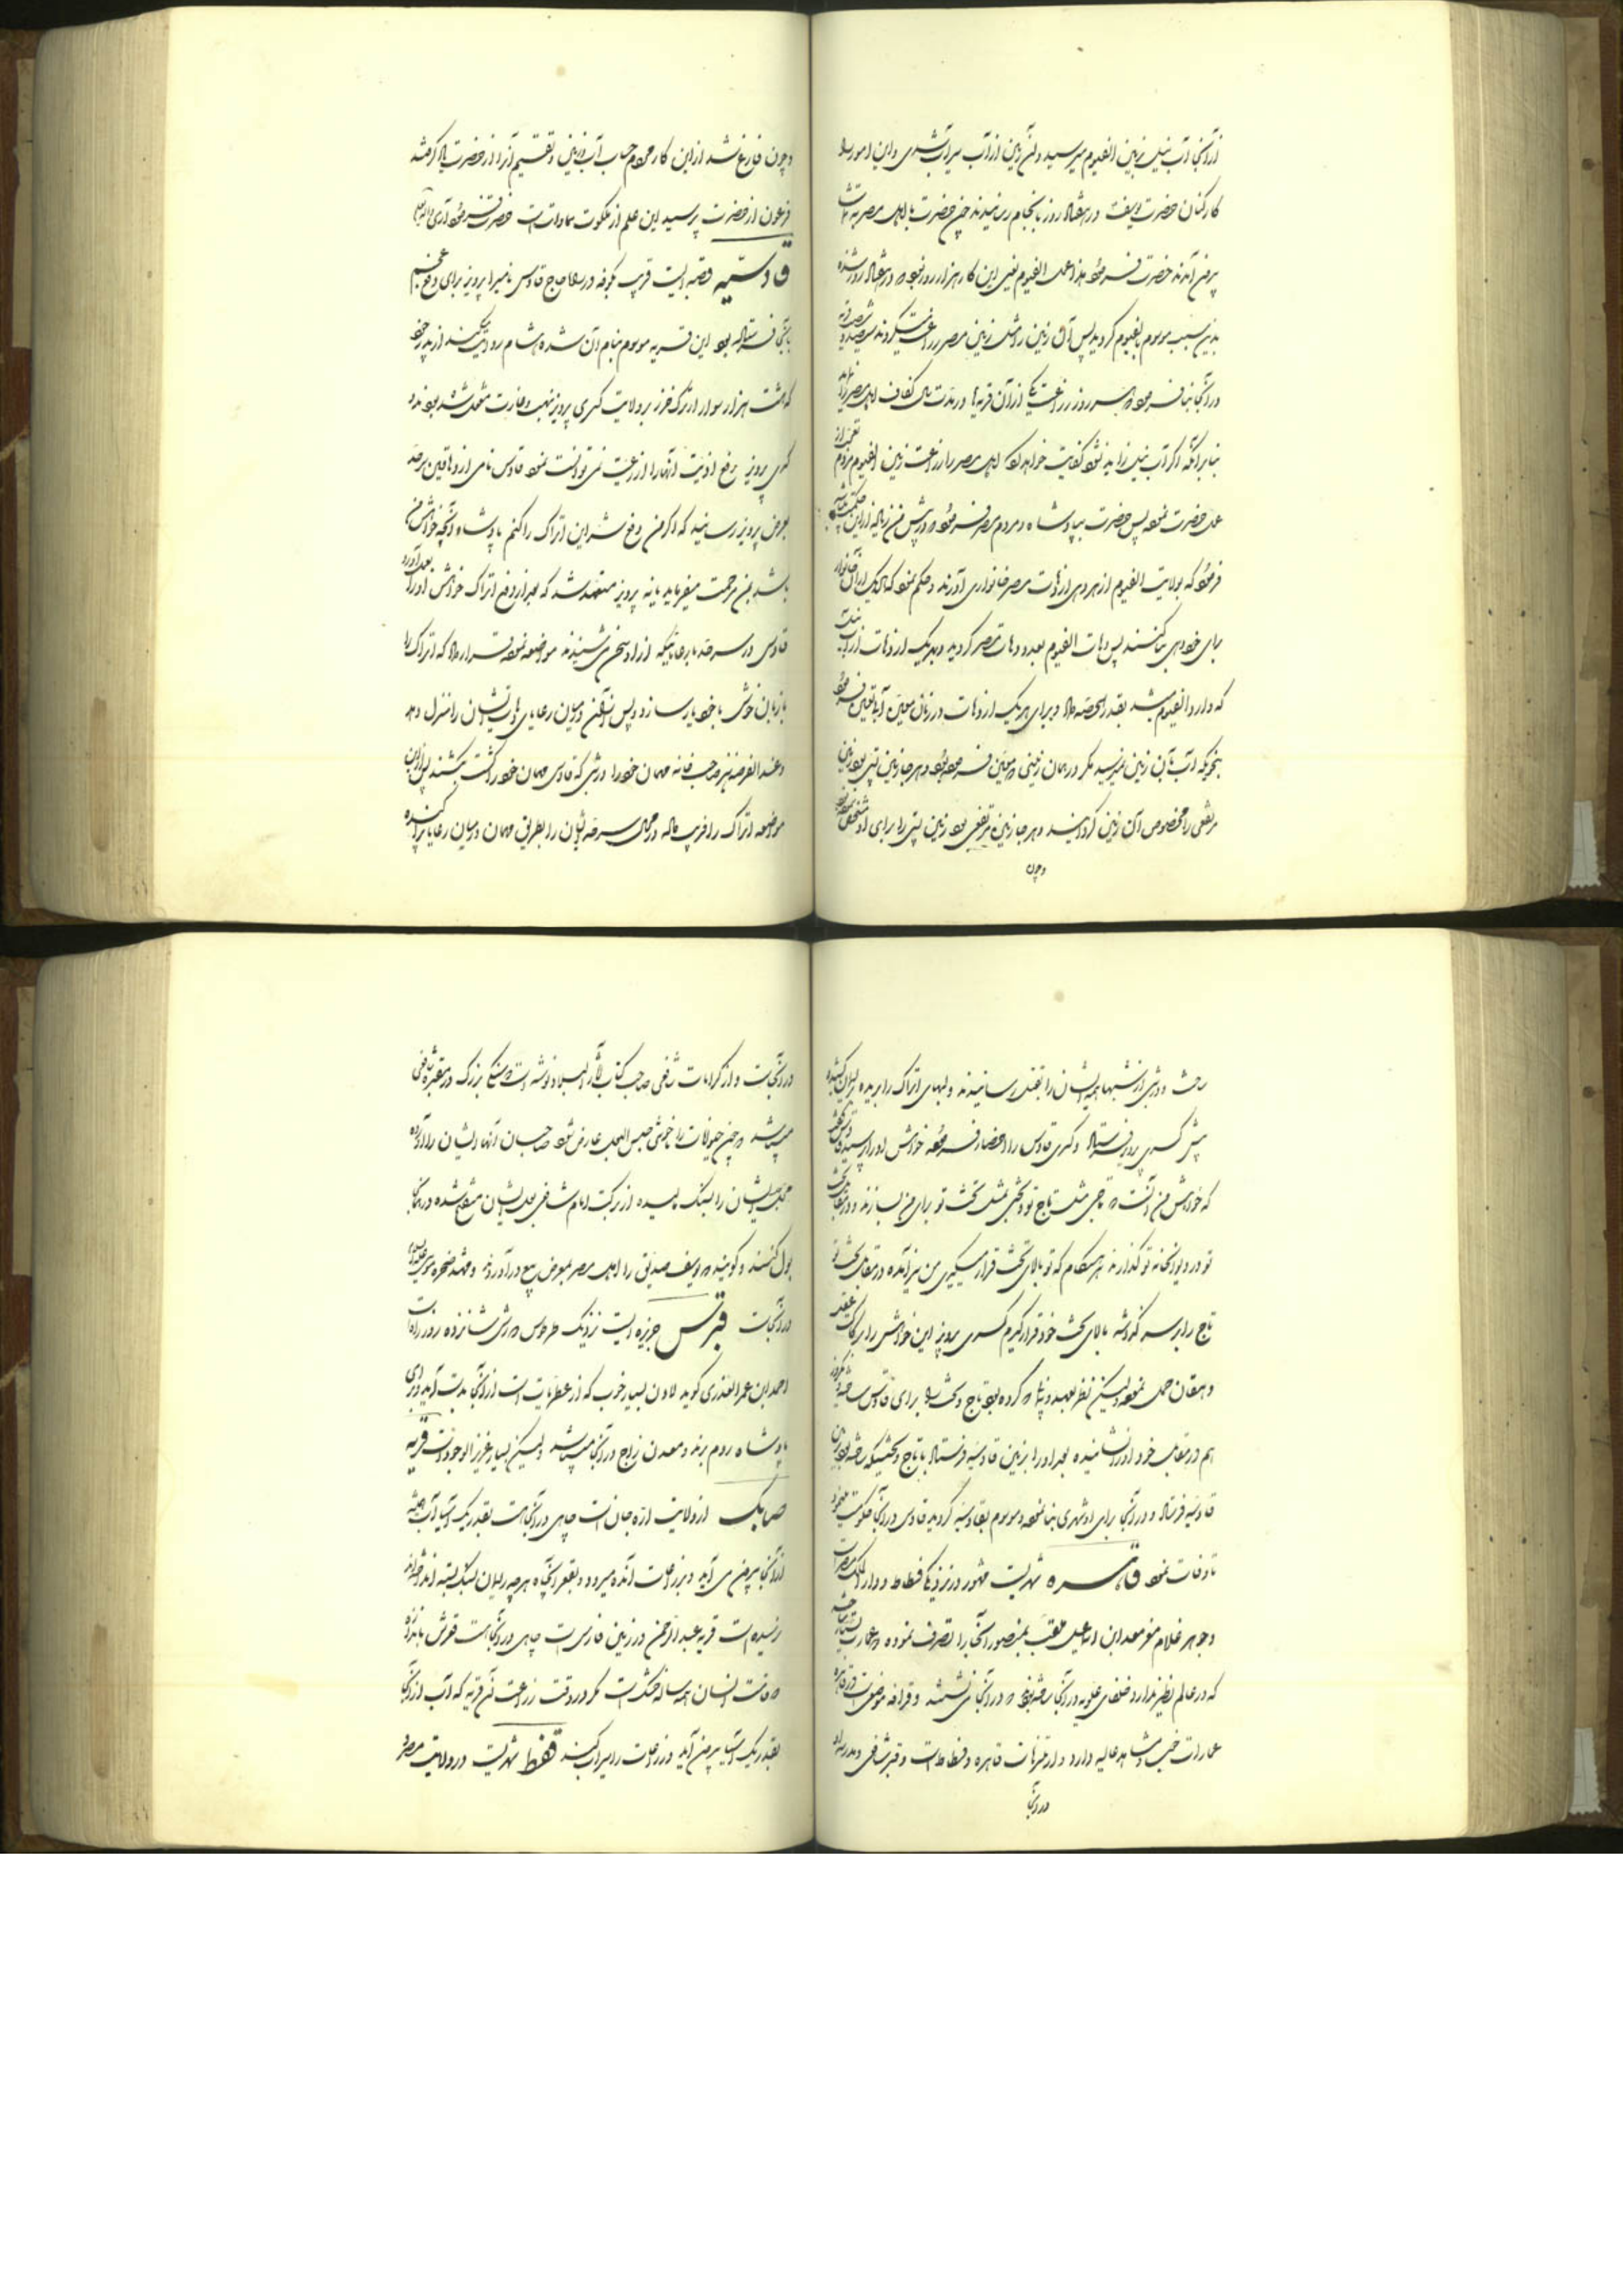 از آنجا آب نیل بزمین الفیوم میرسید و آن زمین از آب سیراب شدی و این امور را
کارکنان حضرت یوسف در هفتاد روز بانجام رسانیدند چون حضرت با اهل مصر
بیرون آمدند حضرت فرمود هذا عمل الفیوم یعنی این کار هزار روز بود که در هفتاد روز شده
بدین سبب موسوم بالفیوم گردید پس آن زمین را مثل زمین مصر زراعت میکردند
در آنجا بنا فرمود که هر روز زراعت یکی از آن قریه‌ها در مدت سال کفاف اهل مصر نماید
بنابر آنکه اگر آب نیل زاید نشود کفایت خواهد کرد اهل مصر را زراعت زمین الفیوم مردم
عمل حضرت نمود پس حضرت بپادشاه و مردم مصر فرمود که در پیش من زیاده از این
فرمود که بولایت الفیوم از هر دهی از دهات مصر خانواری آورند و حکم نمود که هر یک از آن خانوار
برای خود دهی بنا کنند پس دهات الفیوم بعدد دهات مصر گردید و بهر یک از دهات از آب نیل
که وارد الفیوم میشد بقدر الحصه داد و برای هر یک از دهات در زمان معین آب تعیین فرمود
بنحویکه آب بآن زمین نمیرسید مگر در همان زمانی که معین فرموده بود و هر جا زمین پستی بود زمین
مرتفعی را مخصوص آن زمین گردانید و هر جا زمین مرتفعی بود زمین پستی را برای او مشخص
و چون
و چون فارغ شد از این کار مردم حساب آب و زمین و تقسیم آنرا از حضرت یاد گرفتند
فرعون از حضرت پرسید این علم از ملکوت سماوات است حضرت فرمود آری
قادسیه قصبه ایست قریب بکوفه در سر راه حاج قادوس نامی را پرویز برای دفع خصم
بآنجا فرستاده بود این قریه موسوم بنام آن شده هشام روایت میکند از پدر خود
که هشت هزار سوار از ترک خزر بر ولایت کسری پرویز بنهب و غارت مشغول شده بودند و
کسری پرویز رفع اذیت آنها را از رعیت نمی توانست نمود قادوس نامی از دهاقین
بعرض پرویز رسانید که اگر من دفع شر این اتراک را کنم پادشاه آنچه خواهش من
باشد بمن مرحمت میفرماید یا نه پرویز متعهد شد که بعد از دفع اتراک خواهش او را بعمل آورد
قادوس در سرحد با رعایائیکه از او سخن می شنیدند مواضعه نموده قرار داد که اتراک را
بزبان خوش با خود یار سازد و پس از آن در میان رعایای دهات ایشان را منزل دهد
و عند الفرصه هر صاحب خانه مهمان خود را در شبی که قادوس مهمان خود را کشت بکشند پس از این
مواضعه اتراک را فریب داده در محال سرحد ایشان را بطریق مهمان در میان رعایا پراکنده
ساخت و در شبی از شبها همه ایشان را بقتل رسانیدند و لبهای اتراک را بریده
پیش کسری پرویز فرستاد و کسری قادوس را احضار فرموده خواهش او را پرسید
که خواهش من آنست که تاجی مثل تاج تو و تختی مثل تخت تو برای من بسازند و در مقابل تخت
تو در دیوانخانه تو گذارند هر هنگام که تو بالای تخت قرار میگیری من نیز آمده در مقابل تخت تو
تاج را بر سر گذاشته بالای تخت خود قرار گیرم کسری پرویز این خواهش را بر رکاکت عقل
دهقان حمل نموده لیکن نظر بعهد و پیمانی که کرده بود تاج و تخت را برای قادوس ساخته
هم در مقابل خود او را نشانیده بعد او را بزمین قادسیه فرستاد با تاج و تختیکه
قادسیه فرستاد و در آنجا برای او شهری بنا نموده و موسوم بقادسیه گردید قادوس در آنجا حکومت مینمود
تا وفات نمود قاهره شهریست مشهور در نزدیکی فسطاط و دار الملک مصر است
و جوهر غلام معز معد ابن اسماعیل ملقب بمنصور آنجا را تصرف نموده و عمارت
که در عالم نظیر ندارد خلفای علویه در آنجا که در آنجا می نشستند و قرافه موضعی است در قاهره
عمارات خوب و مشاهد عالیه دارد و از متنزهات قاهره و فسطاط است و قبر شافعی و مدرسه او
در آنجا
در آنجاست و از کرامات شافعی صاحب کتاب آثار البلاد نوشته است که سنگی بزرگ در مقبره شافعی
میباشد و چون حیوانات را خوشی حبس البول عارض شود صاحبان آنها ایشان را آورده
ایشان را بسنگ مالیده از برکت امام شافعی بول ایشان مفتوح شده در آنجا
بول کنند و گویند که یوسف صدیق را اهل مصر بمعرض بیع در آوردند و مشهد صخره موسی علیه السلام
در آنجاست قبرس جزیره ایست نزدیک طرسوس دورش شانزده روز راه است
احمد ابن عمر العذری گوید لادن بسیار خوب که از عطریات است از آنجا بدست آید و برای
پادشاه روم برند و معدن زاج در آنجا میباشد و لیکن بسیار عزیز الوجود است قریه
صاهک از ولایت ارجان است چاهی در آنجا هست بقدر یک آسیا آب همیشه
از آنجا بیرون می آید و بزراعات آنده میرود و بقعر آن چاه هر چه ریسمان بسنگ بسته انداخته اند
نرسیده است قریه عبد الرحمن در زمین فارس است چاهی در آنجا هست قعرش باندازه
قامت انسان همه ساله خشک است مگر در وقت زراعت آن قریه که آب از آنجا
بقدر یک آسیا بیرون آید و زراعات را سیراب کند قفط شهریست در ولایت مصر